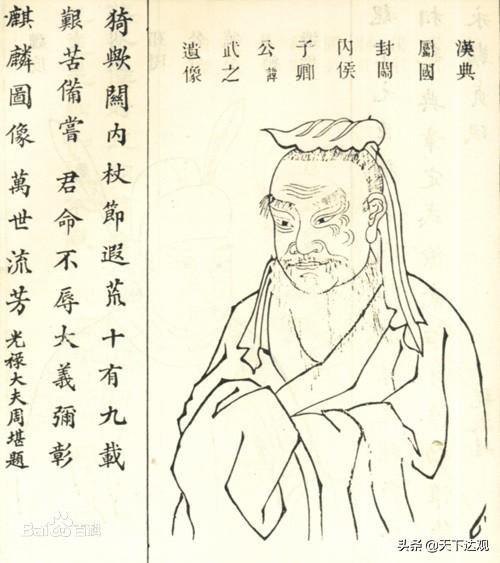 漢典
屬國
封關
內侯
子卿
公諱
武之
遺像
猗歟關內杖節遐荒十有九載
艱苦備嘗君命不辱大義彌彰
麒麟圖像萬世流芳光祿大夫周堪題
Bai百科
头条@天下达观